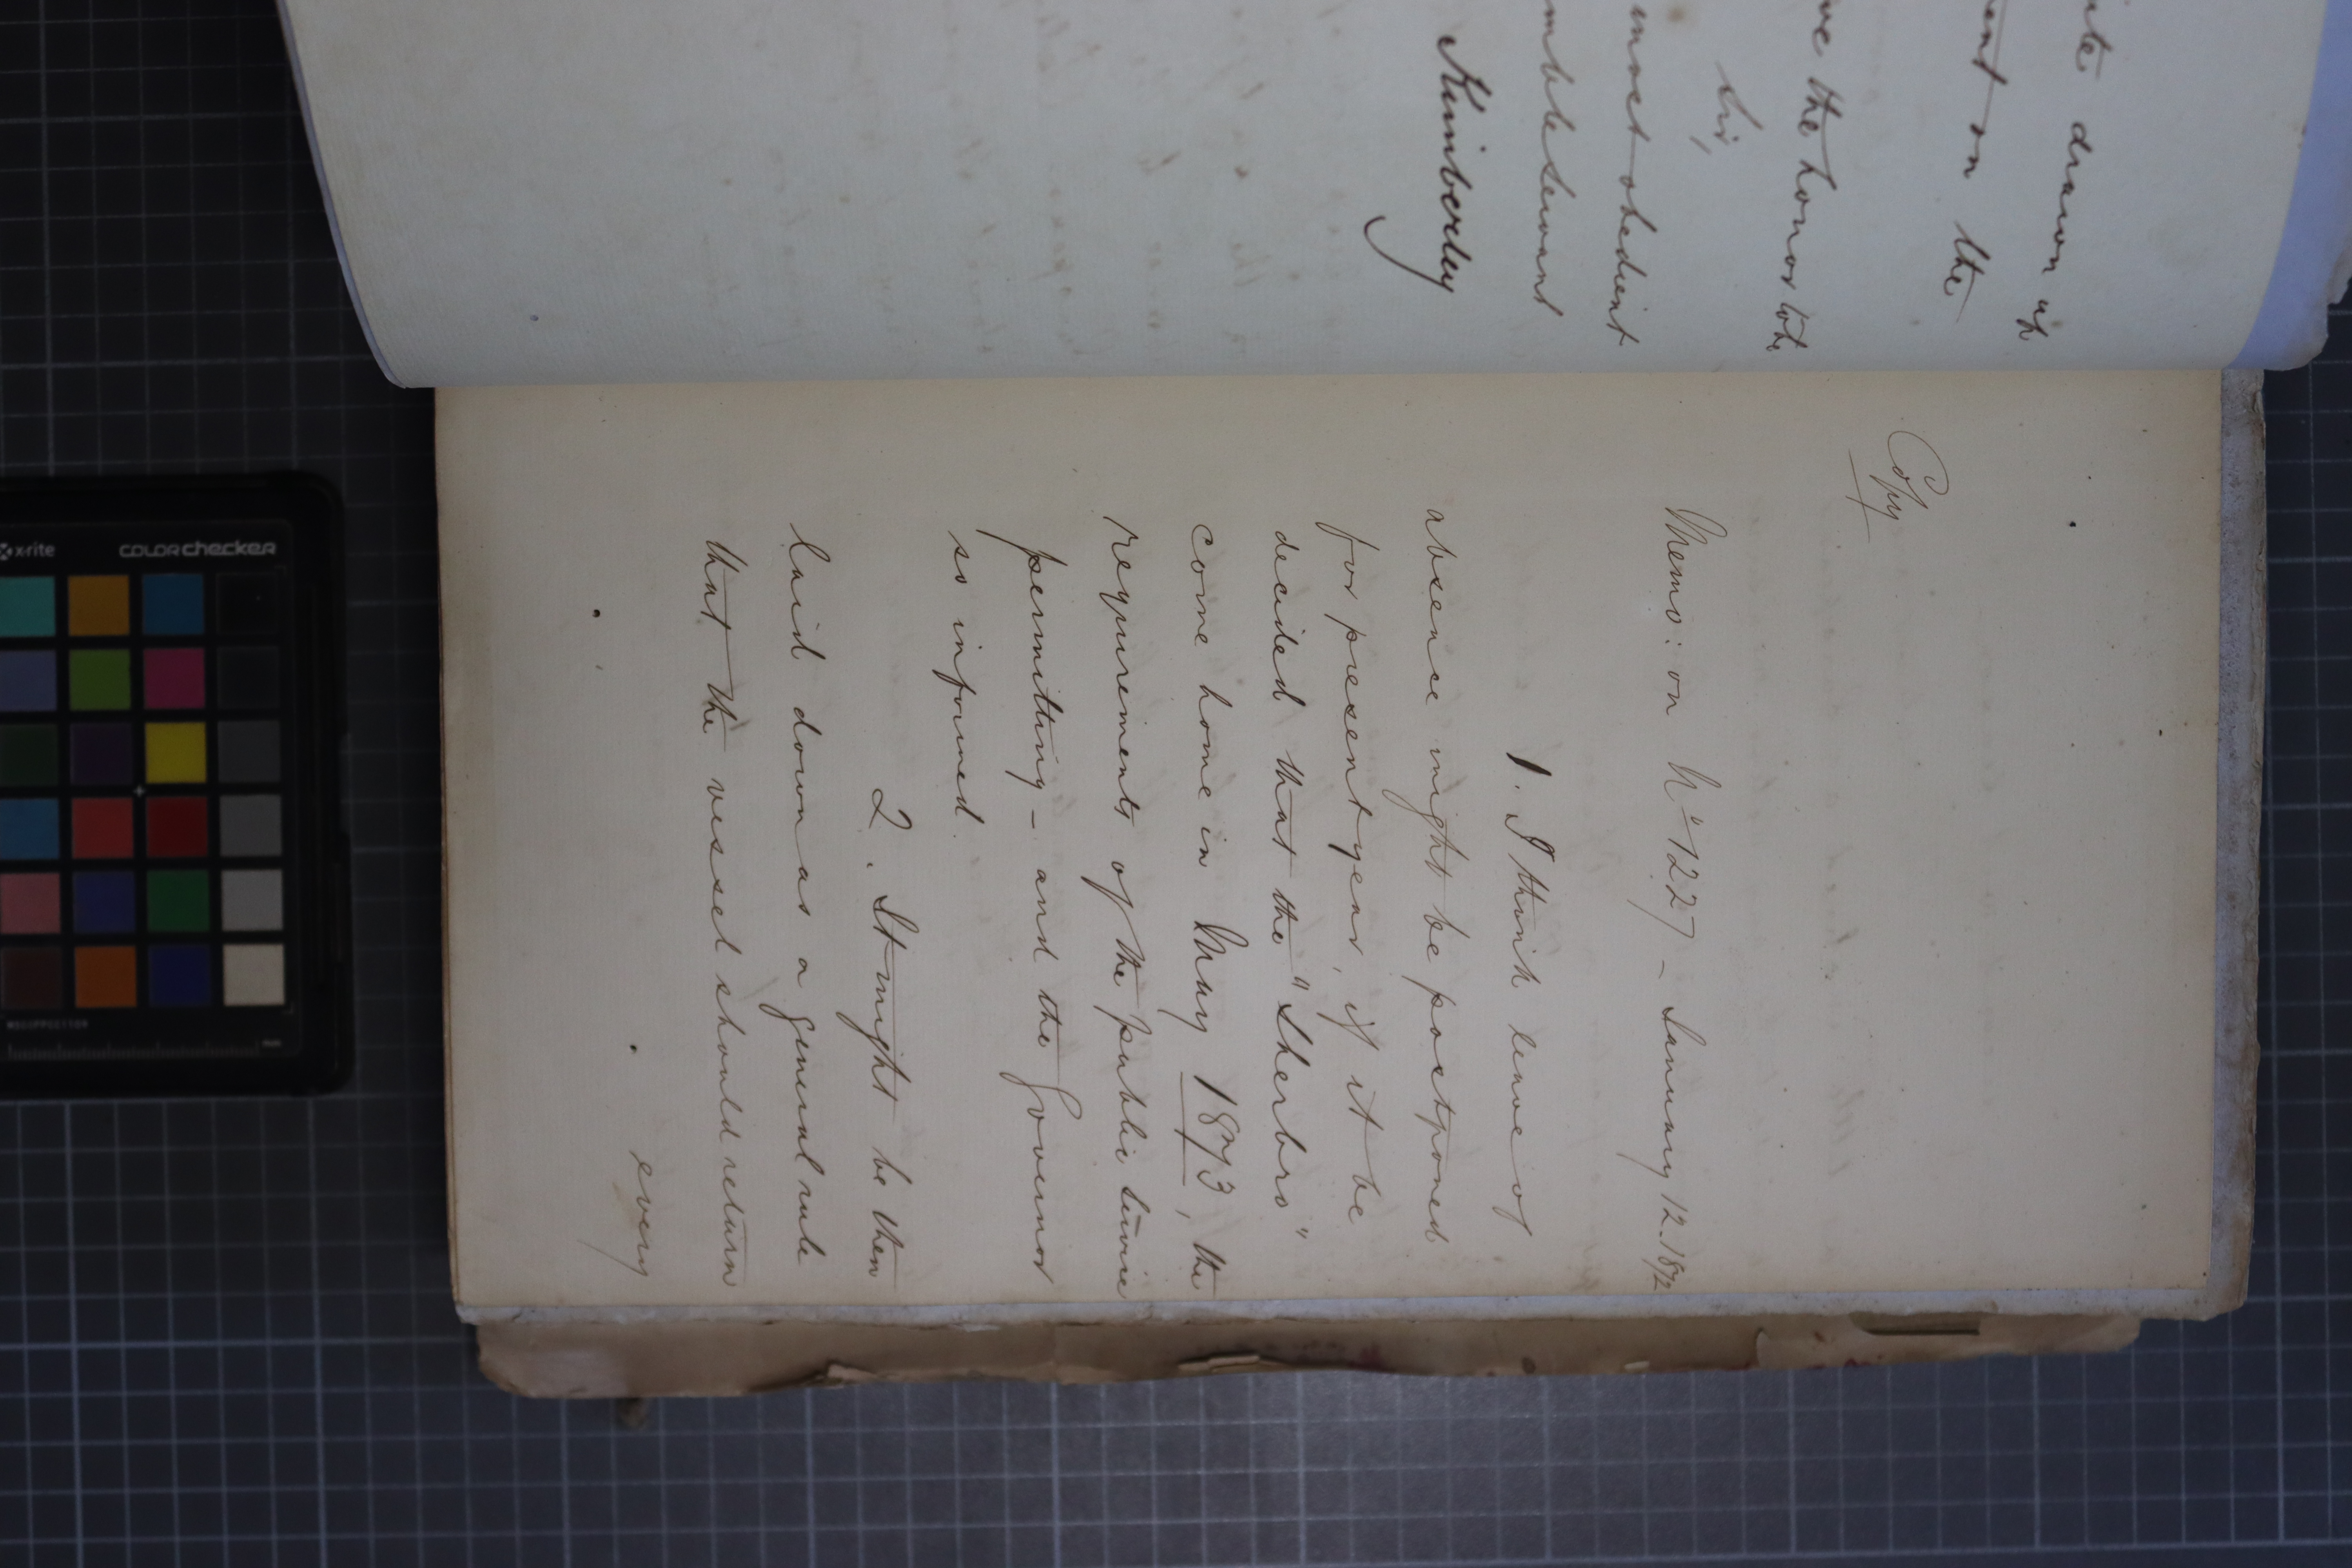 ite drawn up
ent on the
ve the honor to be
Sir,
most obedient
mble servant
Kimberley
Copy
Memo: on No 1227 - January 12. 1872
1. I think leave of
absence might be postponed
for present year, if it be
decided that the "Sherbro"
come home in May 1873, the
requirements of the public service
permitting - and the Governor
so informed.
2. It might be then
laid down as a general rule
that the vessel should return
every
x-rite
colorchecker
mm